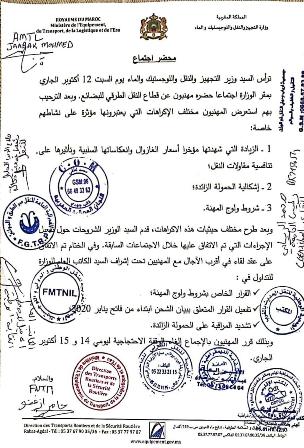 ROYAUME DU MAROC
Ministère de l'Equipement,
du Transport, de la Logistique et de l'Eau
المملكة المغربية
وزارة التجهيز والنقل واللوجيستيك والماء
AMTL
محضر اجتماع
ترأس السيد وزير التجهيز والنقل واللوجستيك والماء يوم السبت 12 أكتوبر الجاري
بمقر الوزارة اجتماعا حضره مهنيون عن قطاع النقل الطرقي للبضائع. وبعد الترحيب
بهم استعرض المهنيون مختلف الإكراهات التي يعتبرونها مؤثرة على نشاطهم
خاصة:
1 - الزيادة التي شهدتها مؤخرا أسعار الغازوال وانعكاساتها السلبية وتأثيرها على
تنافسية مقاولات النقل؛
2 - إشكالية الحمولة الزائدة؛
3 - شروط ولوج المهنة.
وبعد طرح مختلف حيثيات هذه الإكراهات، قدم السيد الوزير الشروحات حول
الإجراءات التي تم الاتفاق عليها خلال الاجتماعات السابقة. وفي الختام تم الاتفاق
على عقد لقاء في أقرب الآجال مع المهنيين تحت إشراف السيد الكاتب العام للوزارة
للتداول في:
القرار الخاص بشروط ولوج المهنة؛
تفعيل القرار المتعلق ببيان الشحن ابتداء من فاتح يناير 2020؛
تشديد المراقبة على الحمولة الزائدة.
وبذلك قرر المهنيون بالإجماع إلغاء الوقفة الاحتجاجية ليومي 14 و 15 أكتوبر
الجاري.
والسلام
C.O.M
F.G.T.R
FMTNIL
FNTR
Direction des Transports
Routiers et de la
Sécurité Routière
Direction des Transports Routiers et de la Sécurité Routière
www.equipement.gov.ma